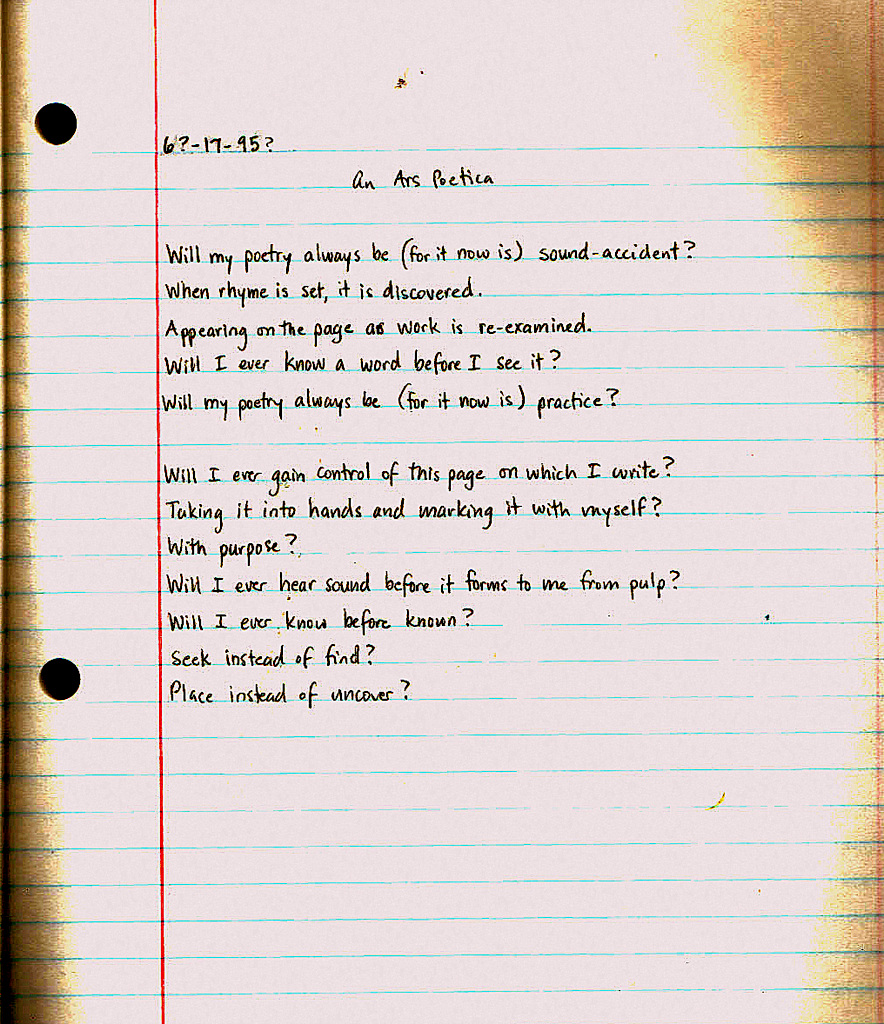 6?-17-95?
An Ars Poetica
Will my poetry always be (for it now is) sound-accident?
When rhyme is set, it is discovered.
Appearing on the page as work is re-examined.
Will I ever know a word before I see it?
Will my poetry always be (for it now is) practice?
Will I ever gain control of this page on which I write?
Taking it into hands and marking it with myself?
With purpose?
Will I ever hear sound before it forms to me from pulp?
Will I ever know before known?
Seek instead of find?
Place instead of uncover?